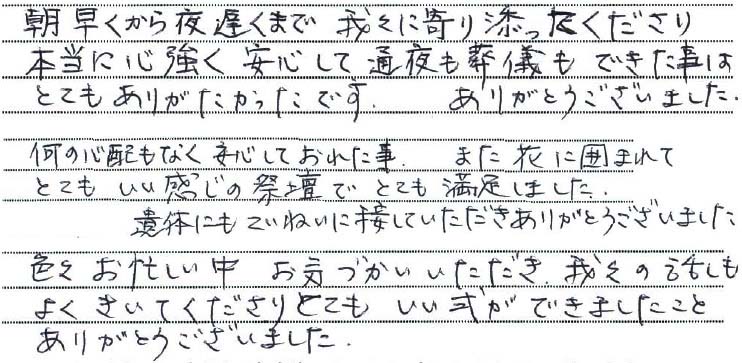 朝早くから夜遅くまで 我々に寄り添ってくださり
本当に心強く安心して通夜も葬儀もできた事は
とてもありがたかったです. ありがとうございました.
何の心配もなく安心しておれた事. また花に囲まれて
とても いい感じの祭壇でとても満足しました.
遺体にもていねいに接していただきありがとうございました
色々お忙しい中 お気づかいいただき, 我々の話しも
よくきいてくださりとても いい式ができましたこと
ありがとうございました.